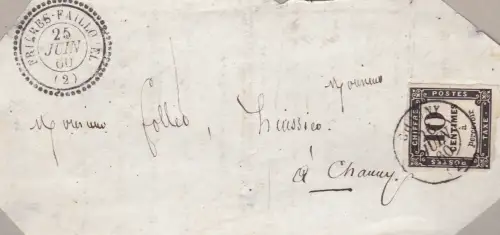 FRIÈRES-FAILLOUEL
25
JUIN
60
(2)
Monsieur
Monsieur Follet, Huissier
à Chauny
POSTES
CHIFFRE
TAXE
10
CENTIMES
à
POSTES